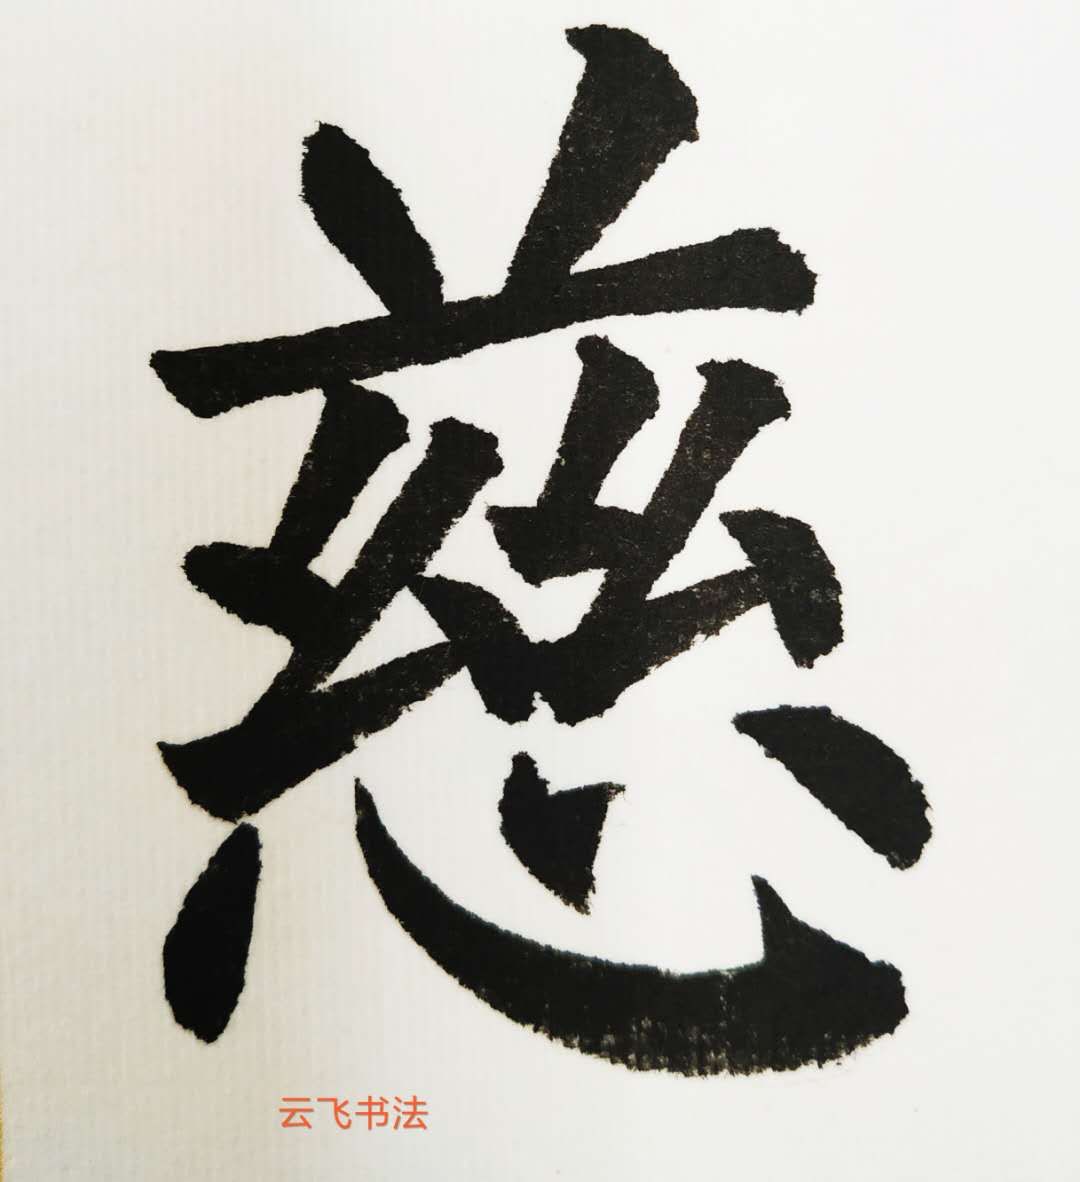 慈
云飞书法